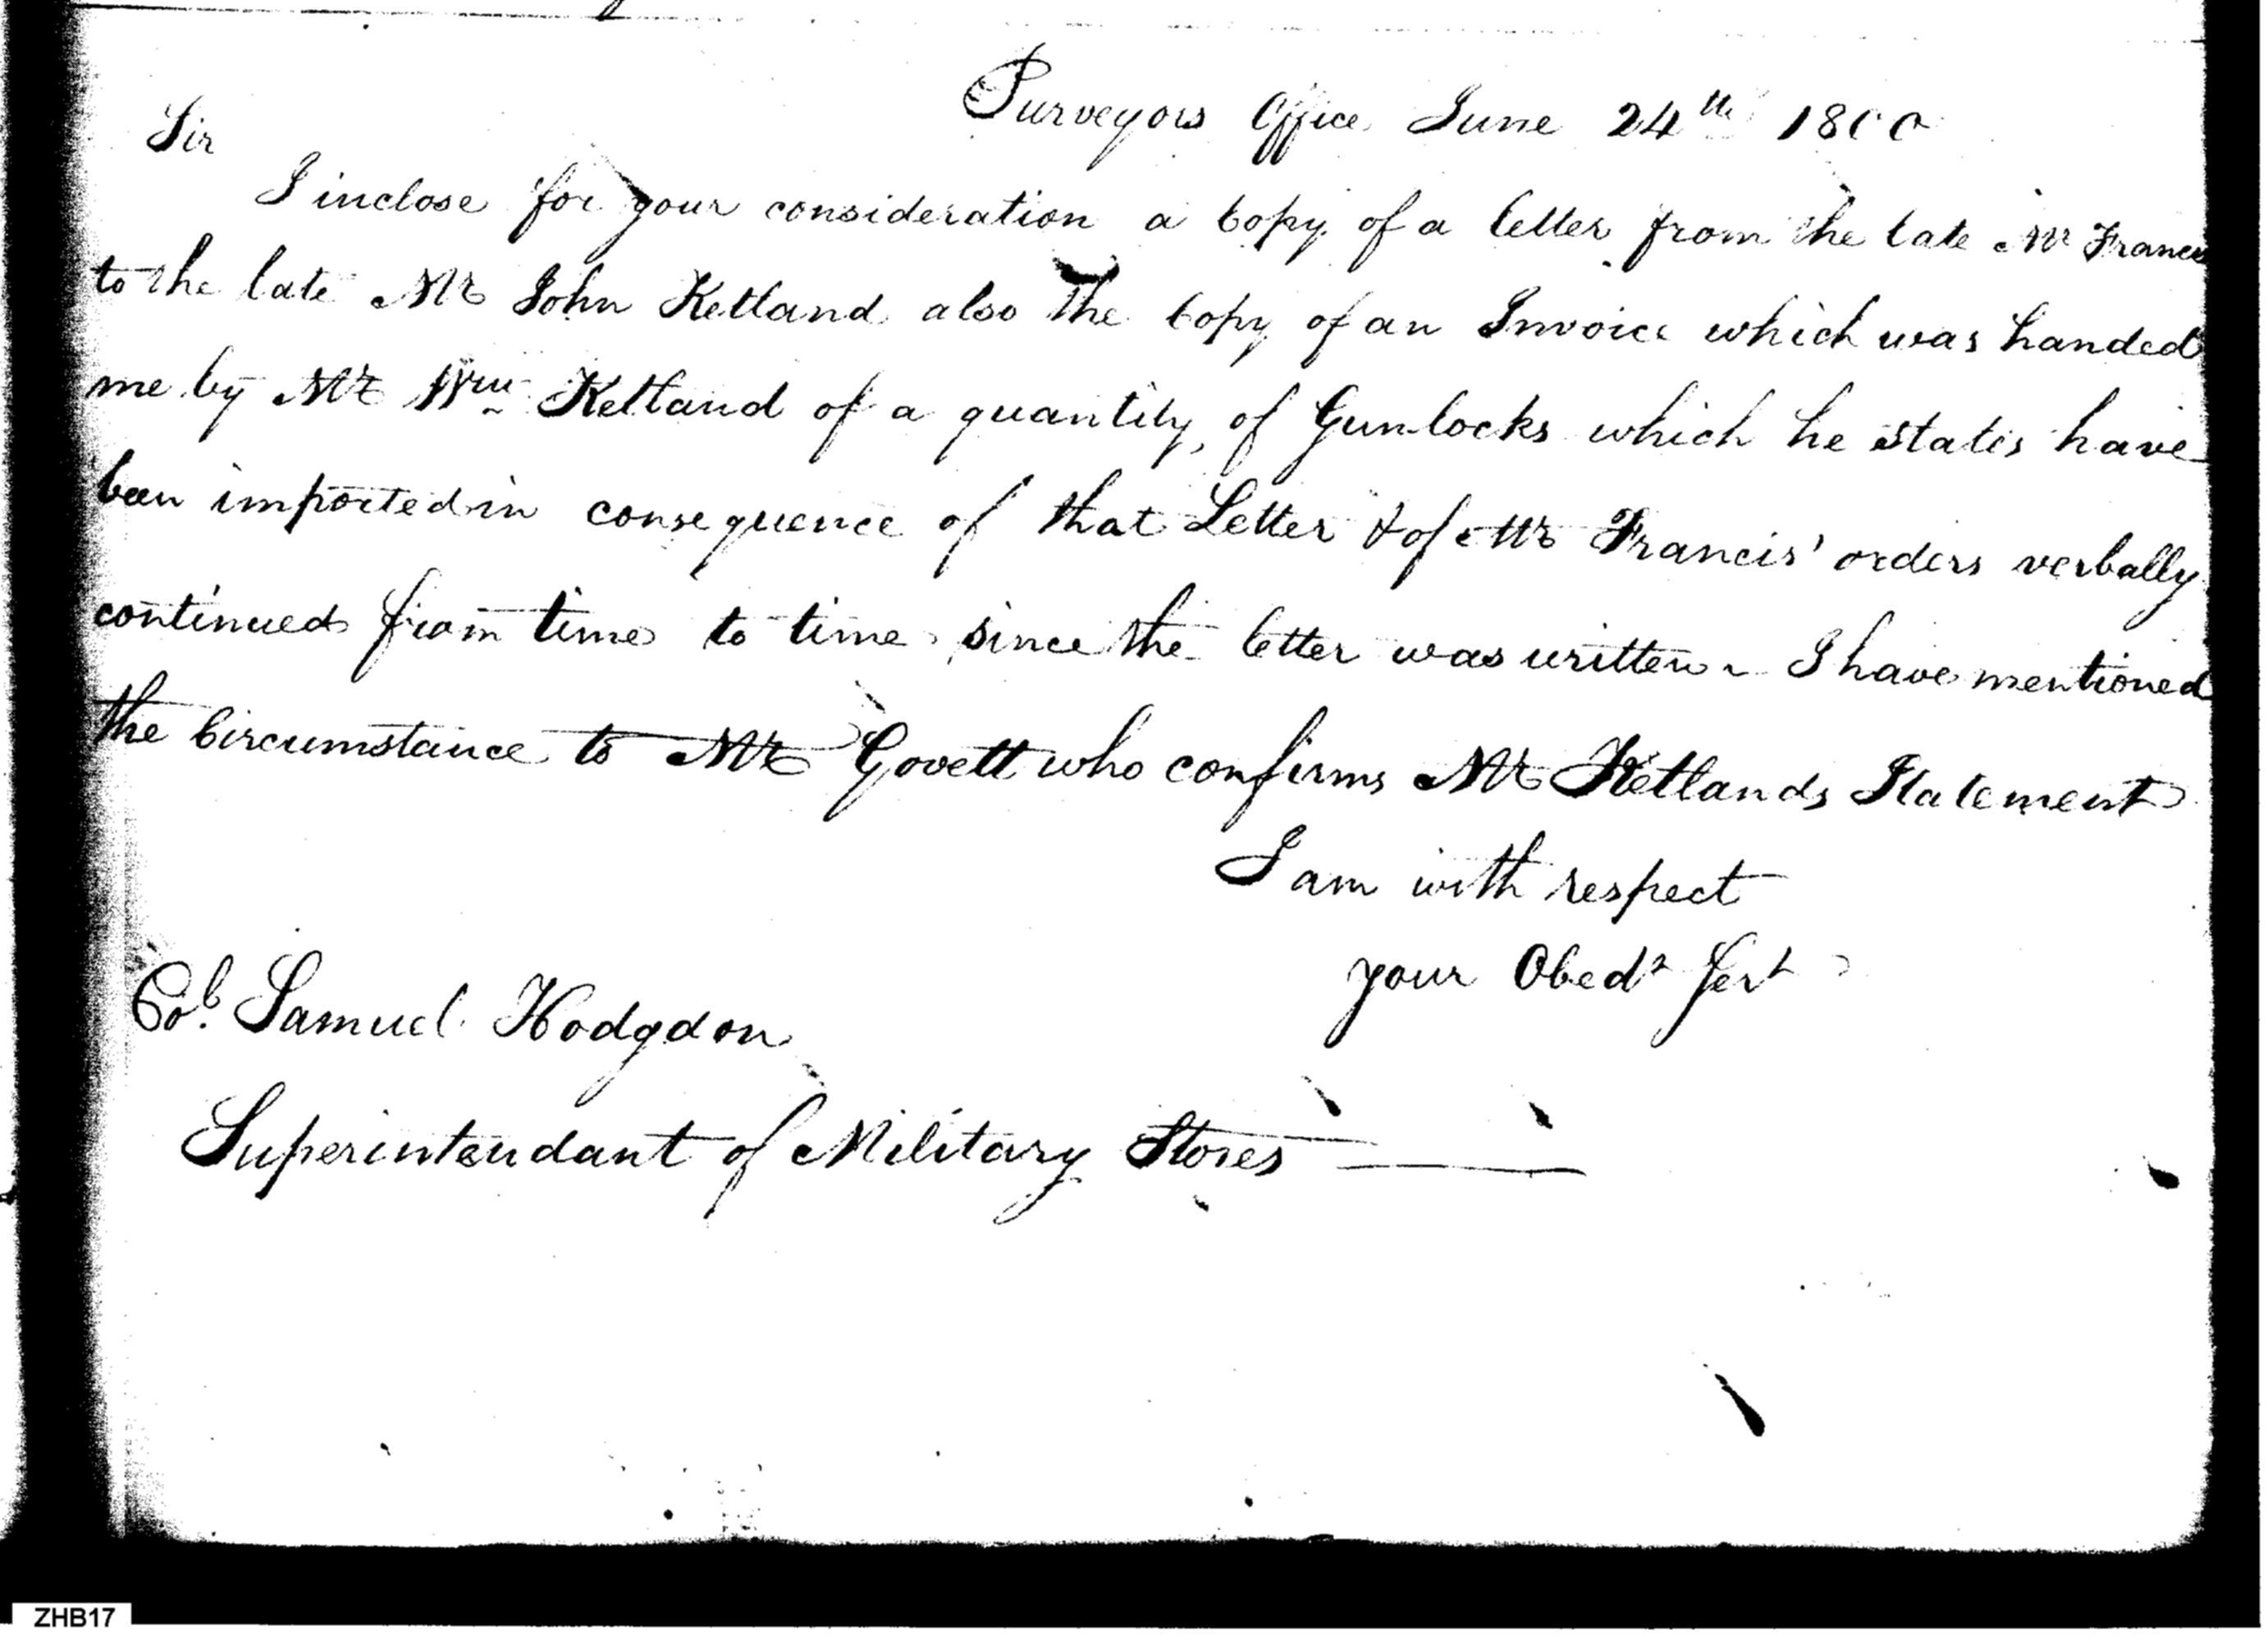 Purveyors Office June 24th 1800
Sir
I inclose for your consideration a Copy of a letter from the late Mr Francis
to the late Mr John Ketland also the Copy of an Invoice which was handed
me by Mr Wm Ketland of a quantity of Gun-locks which he states have
been imported in consequence of that Letter & of Mr Francis' orders verbally
continued from time to time since the letter was written ~ I have mentioned
the Circumstance to Mr Govett who confirms Mr Ketlands Statement
I am with respect
your Obedt Servt
Col. Samuel Hodgdon
Superintendant of Military Stores
ZHB17